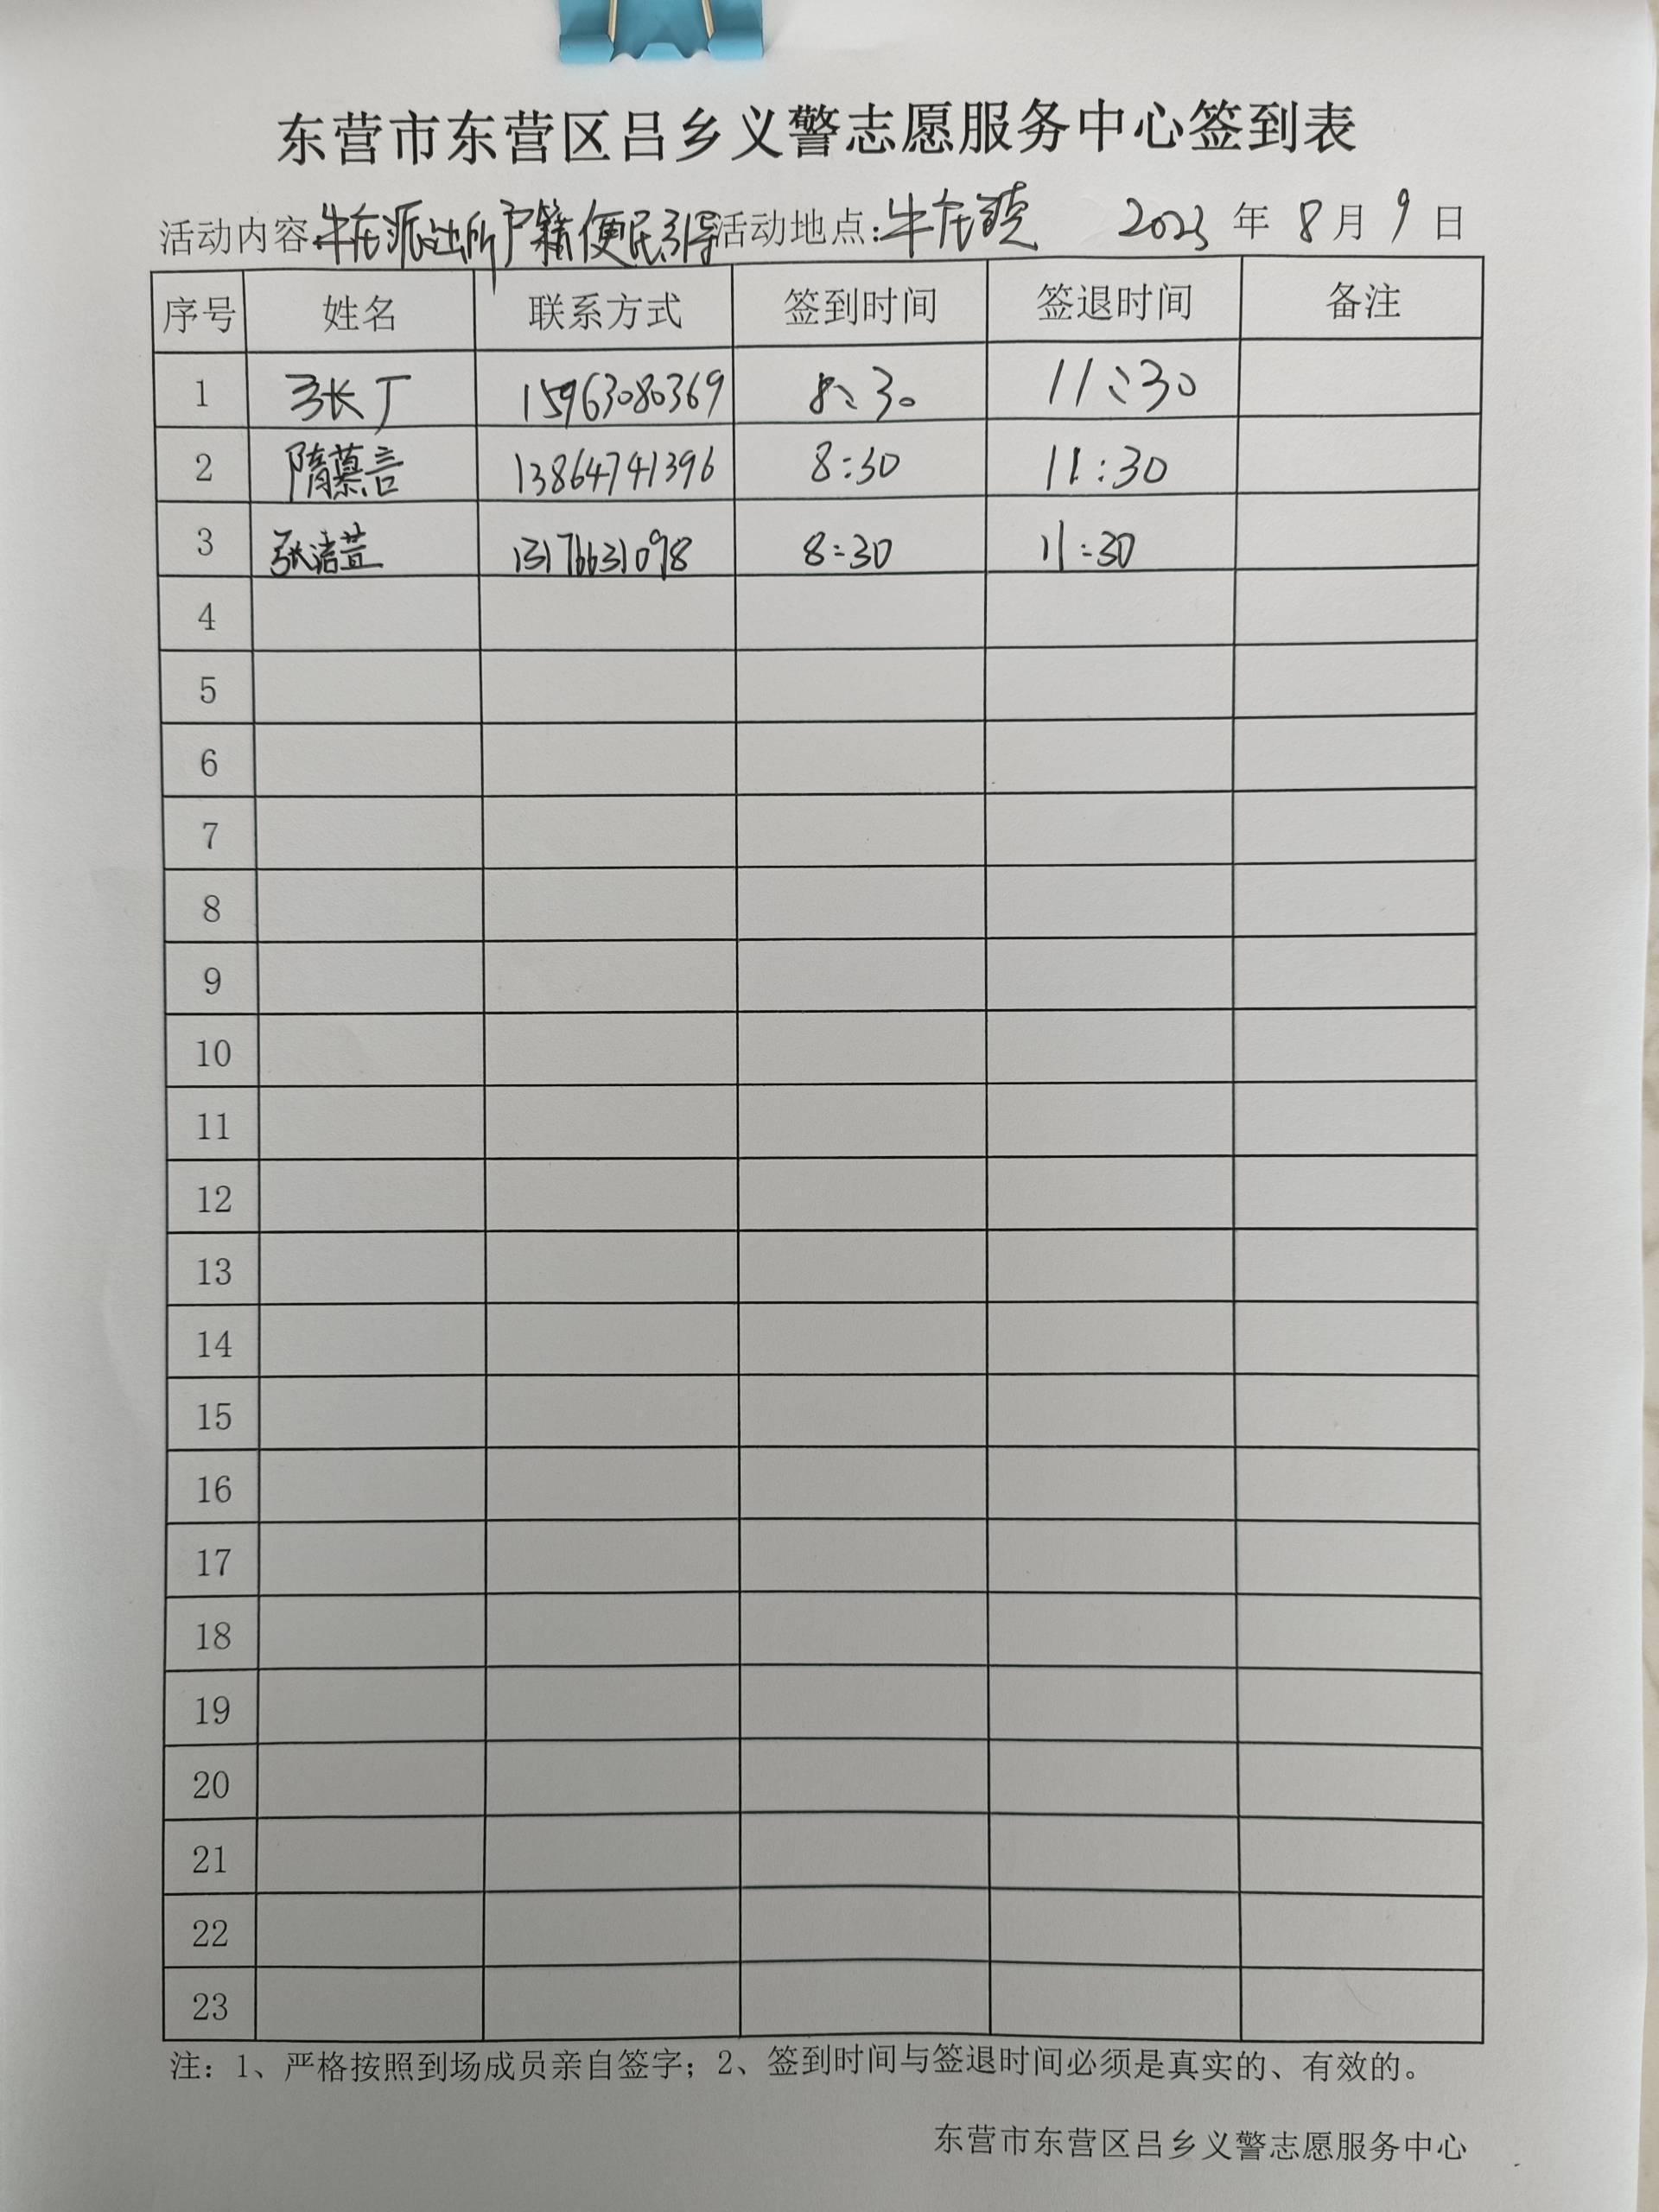 东营市东营区吕乡义警志愿服务中心签到表
活动内容:牛庄派出所户籍便民引导 活动地点:牛庄镇 2023 年 8 月 9 日
序号 姓名 联系方式 签到时间 签退时间 备注
1 张丁 15963080369 8:30 11:30
2 隋慕言 13864741396 8:30 11:30
3 张洁萱 13176631098 8:30 11:30
4
5
6
7
8
9
10
11
12
13
14
15
16
17
18
19
20
21
22
23
注：1、严格按照到场成员亲自签字；2、签到时间与签退时间必须是真实的、有效的。
东营市东营区吕乡义警志愿服务中心